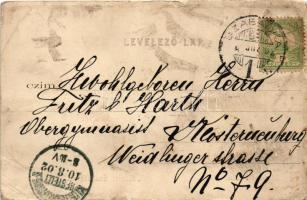 LEVELEZŐ LAP
czim
Hochwohlgeboren Herrn
Fritz v. Harth
Obergymnasist Klosterneuburg
Weidlinger strasse
No 79.
BESTELLT
10.8.02